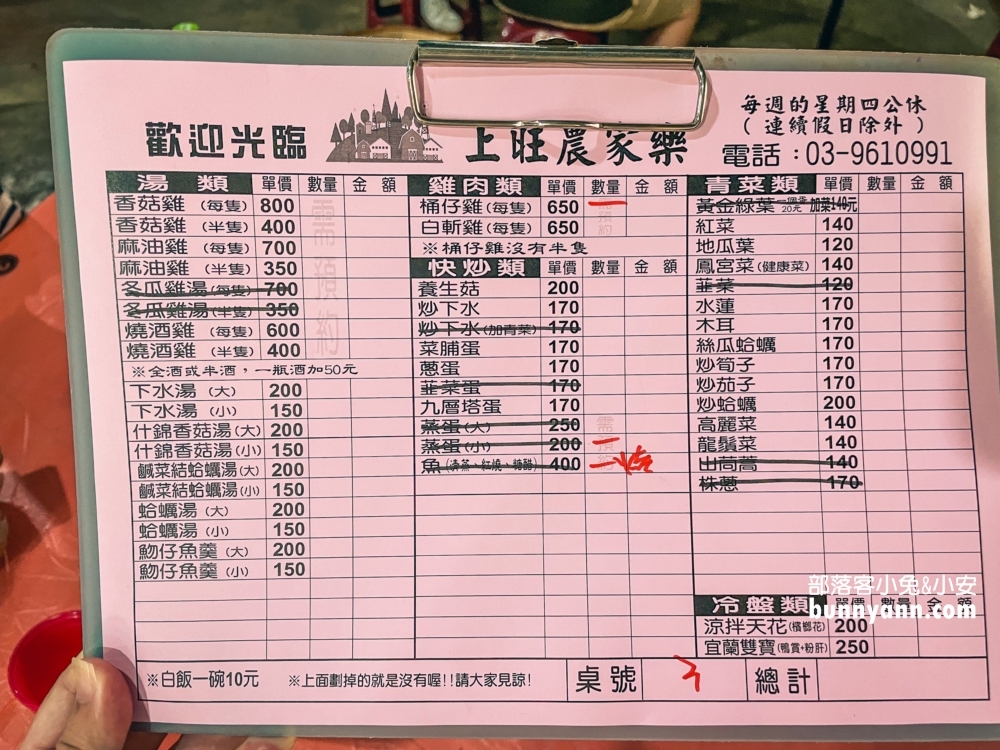 歡迎光臨
上旺農家樂
每週的星期四公休
（連續假日除外）
電話：03-9610991
湯類 單價 數量 金額
香菇雞（每隻） 800
香菇雞（半隻） 400
麻油雞（每隻） 700
麻油雞（半隻） 350
冬瓜雞湯(每隻) 700
冬瓜雞湯(半隻) 350
燒酒雞（每隻） 600
燒酒雞（半隻） 400
需預約
※全酒或半酒，一瓶酒加50元
下水湯（大） 200
下水湯（小） 150
什錦香菇湯(大) 200
什錦香菇湯(小) 150
鹹菜結蛤蠣湯(大) 200
鹹菜結蛤蠣湯(小) 150
蛤蠣湯（大） 200
蛤蠣湯（小） 150
魩仔魚羹（大） 200
魩仔魚羹（小） 150
雞肉類 單價 數量 金額
桶仔雞(每隻) 650 一
白斬雞(每隻) 650
需預約
※桶仔雞沒有半隻
快炒類 單價 數量 金額
養生菇 200
炒下水 170
炒下水(加青菜) 170
菜脯蛋 170
蔥蛋 170
韭菜蛋 170
九層塔蛋 170
蒸蛋(大) 250
蒸蛋(小) 200 一
魚(清蒸、紅燒、糖醋) 400 一
青菜類 單價 數量 金額
黃金綠葉 一個蛋20元 加菜140元
紅菜 140
地瓜葉 120
鳳宮菜(健康菜) 140
韮菜 120
水蓮 170
木耳 170
絲瓜蛤蠣 170
炒筍子 170
炒茄子 170
炒蛤蠣 200
高麗菜 140
龍鬚菜 140
山茼蒿 140
株蔥 170
冷盤類 單價 數量 金額
涼拌天花(檳榔花) 200
宜蘭雙寶(鴨賞+粉肝) 250
※白飯一碗10元
※上面劃掉的就是沒有喔!!請大家見諒!
桌號 3
總計
部落客小兔&小安
bunnyann.com